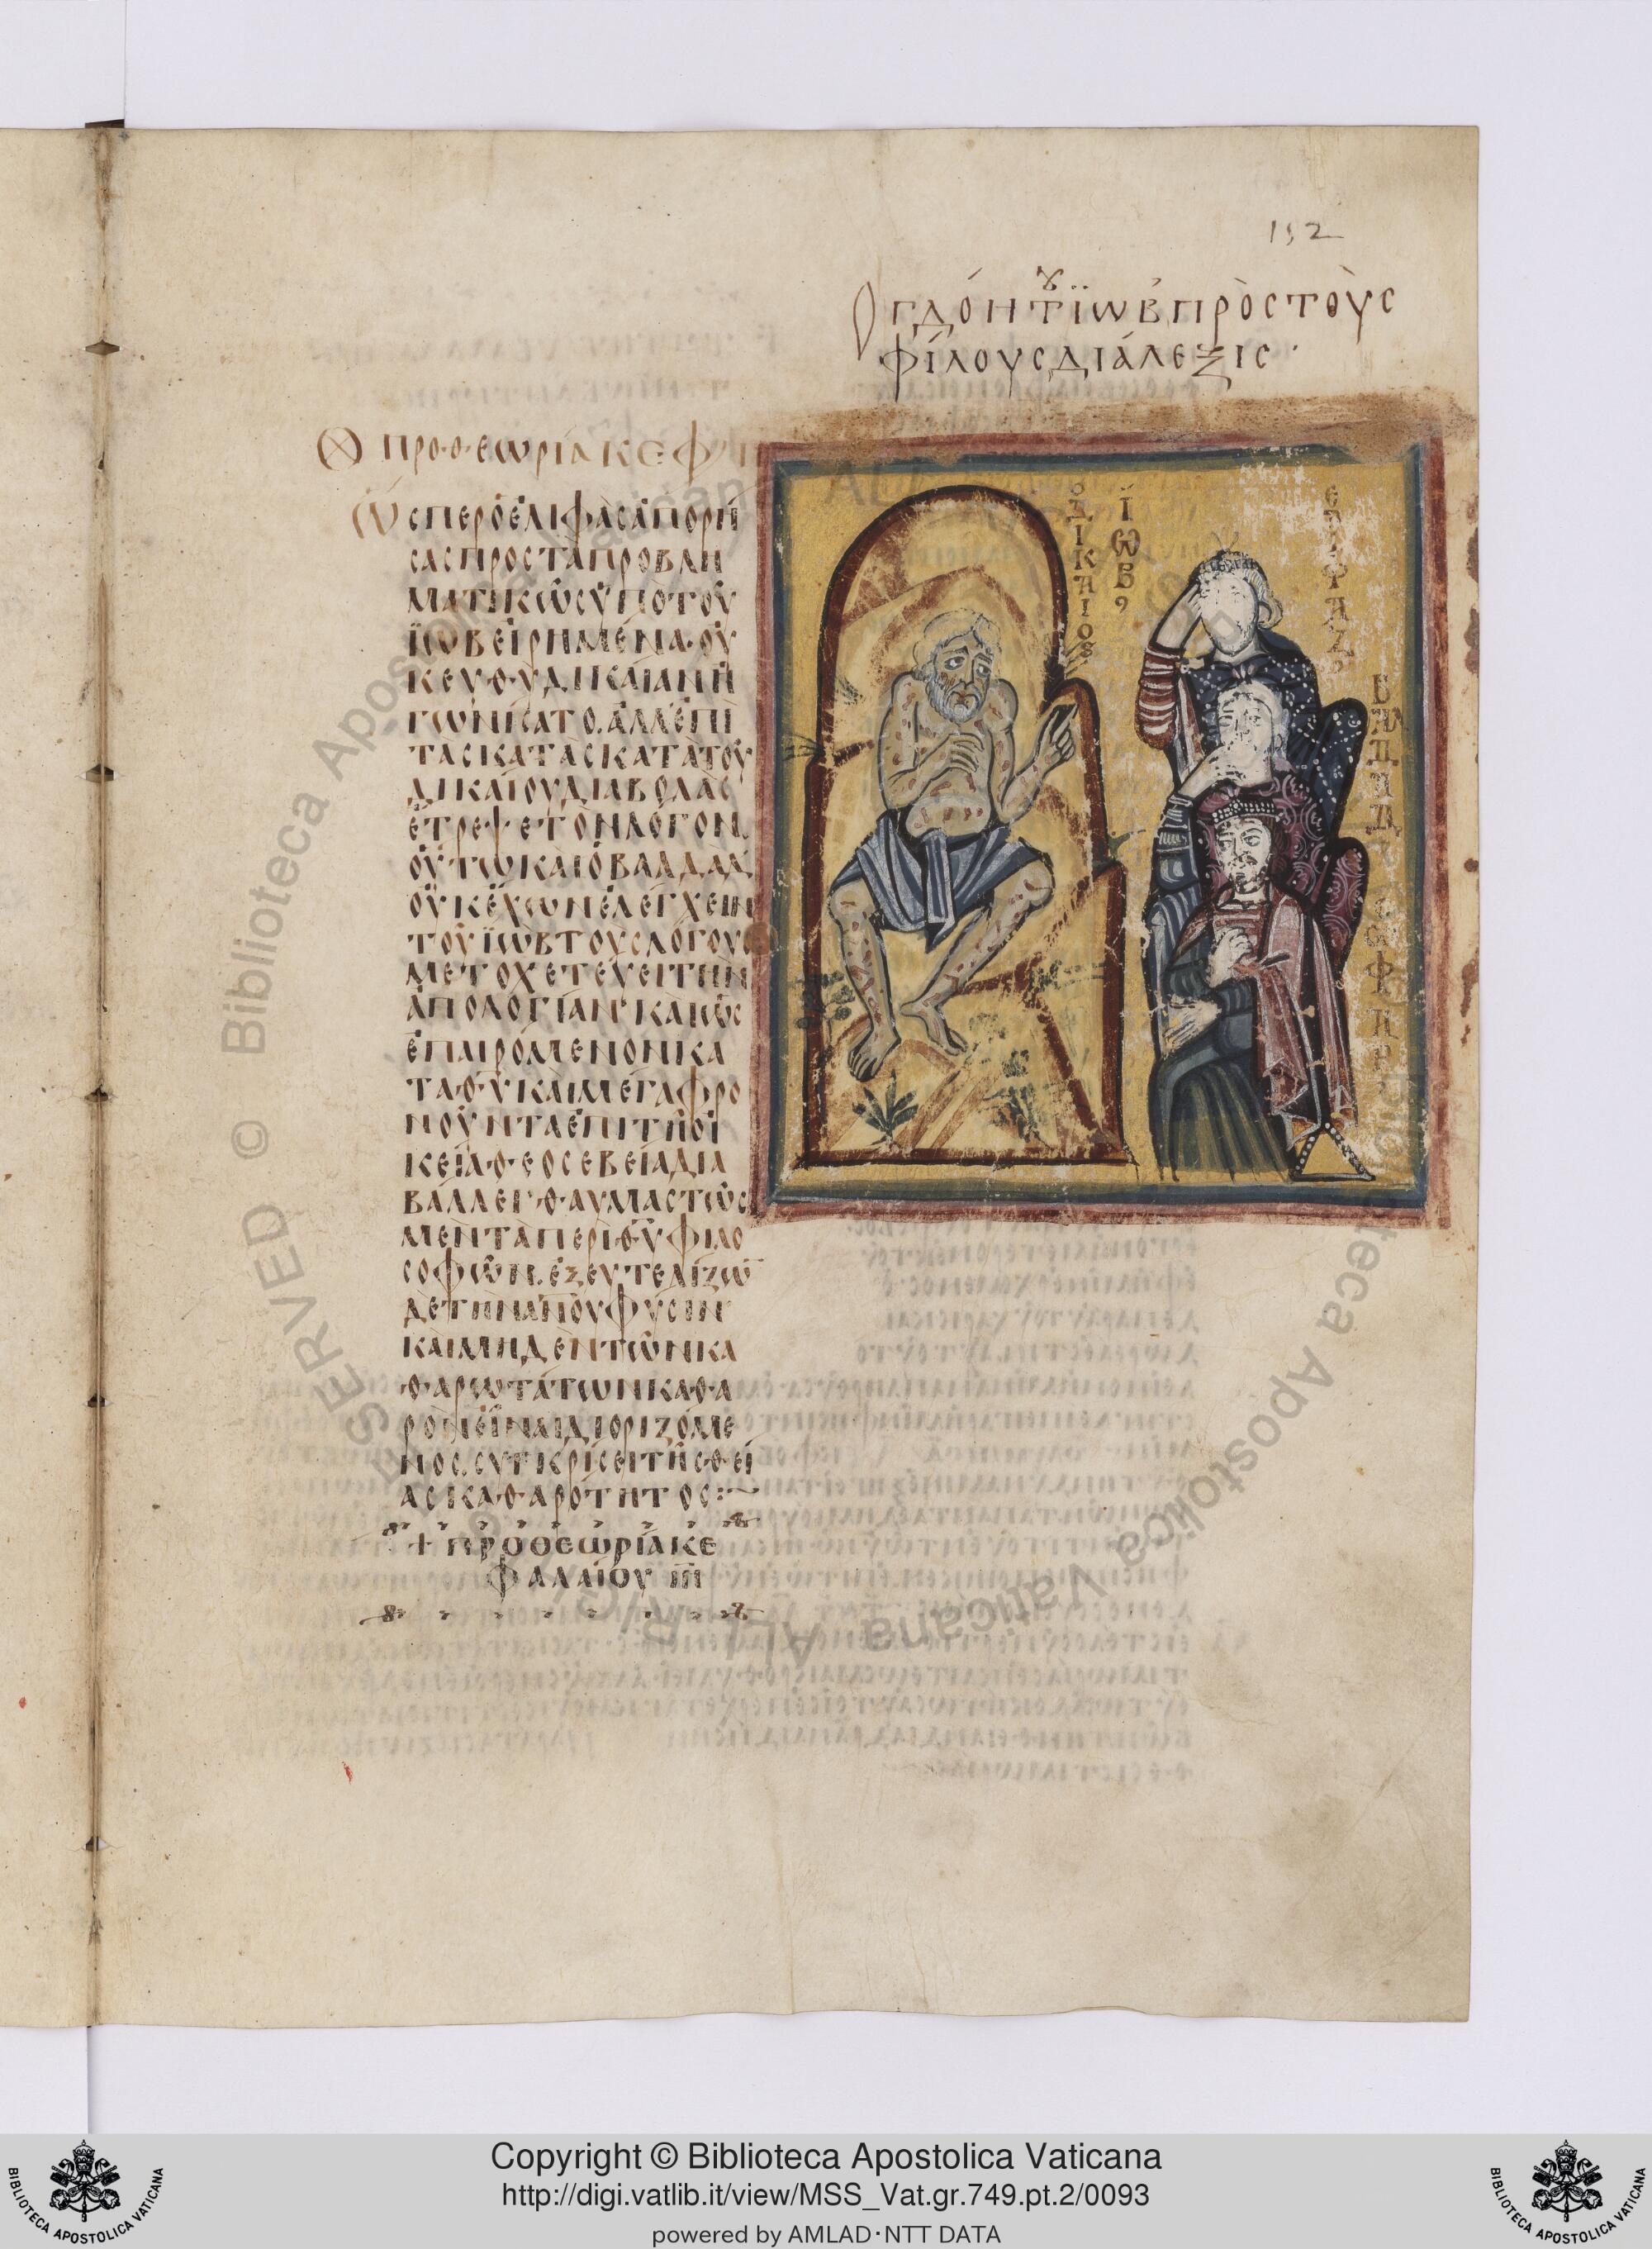 152
Ὀγδόη τοῦ ϊὼβ πρὸς τοὺς
φίλους διάλεξις·
προθεωρία κεφ
Ὥσπερ ὁ ἐλιφὰς ἀπορή
σας πρὸς τὰ προβλη
ματικῶς ὑπὸ τοῦ
ϊὼβ εἰρημένα· οὐ
κ ευθυδικαίαν ἠ
γωνίσατο. ἀλλ' ἐπὶ
τὰς κατὰ τοῦ
δικαίου διαβολὰς
ἔτρεψε τὸν λόγον.
οὕτω καὶ ὁ βαλδὰδ
οὐκ ἔχων ἐλέγχειν
τοῦ ϊὼβ τοὺς λόγους
μετοχετεύει τὴν
ἀπολογίαν· καὶ ὡς
ἐπαιρόμενον κα
τὰ θυ καὶ μεγαφρο
νοῦντα ἐπὶ τῆ οἰ
κεία θεοσεβεία δια
βάλλει· θαυμαστῶς
μὲν τὰ περὶ θυ φιλο
σοφῶν. ἐξευτελίζων
δὲ τὴν ανου φύσιν
καὶ μηδὲν τῶν κα
θαρωτάτων καθα
ρὸν εἶναι διοριζόμε
νος. συγκρίσει τῆς θεί
ας καθαρότητος:~
+ προθεωρία κε
φαλαίου ιη
ὁ δίκαιος
ϊώβ
ελιφαζ
βαλδαδ
σωφαρ
Copyright © Biblioteca Apostolica Vaticana
http://digi.vatlib.it/view/MSS_Vat.gr.749.pt.2/0093
powered by AMLAD·NTT DATA
BIBLIOTECA APOSTOLICA VATICANA
BIBLIOTECA APOSTOLICA VATICANA